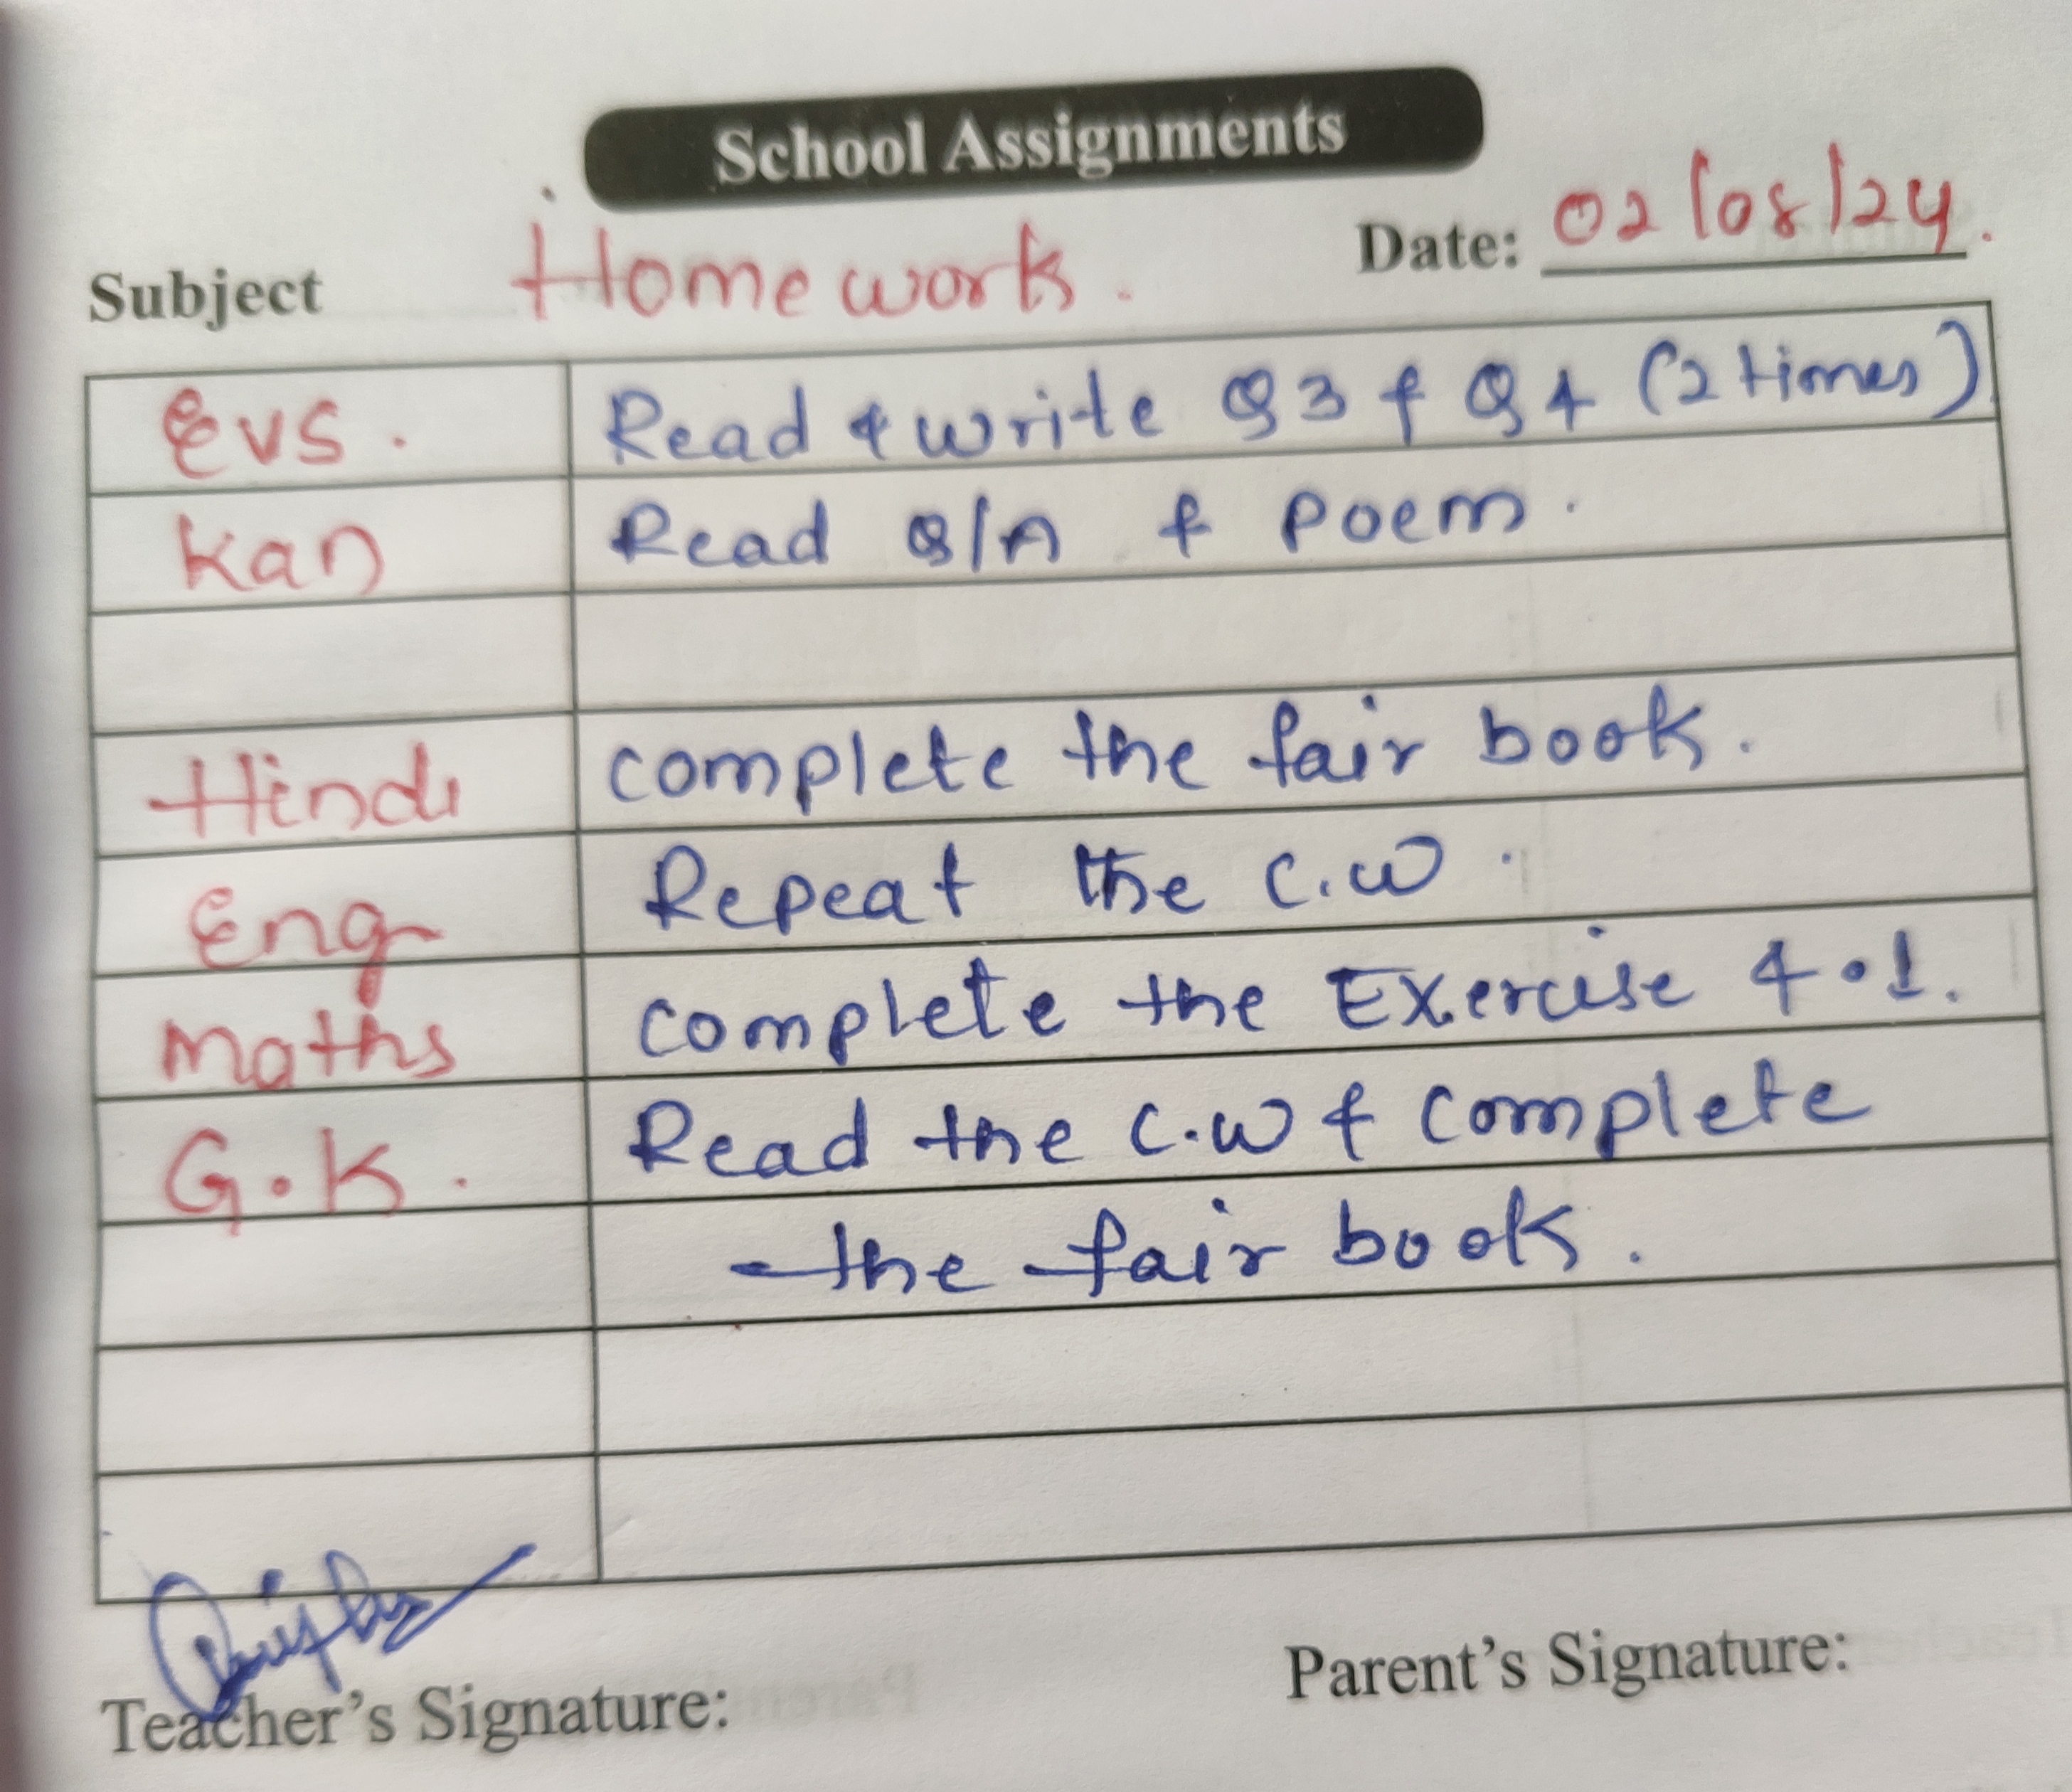 School Assignments
Subject Homework. Date: 02/08/24.
Evs. Read & write Q3 & Q4 (2 times)
Kan Read Q/A & Poem.
Hindi complete the fair book.
Eng Repeat the C.W.
Maths complete the Exercise 4.1.
G.K. Read the C.W & complete
the fair book.
Teacher's Signature: Parent's Signature: